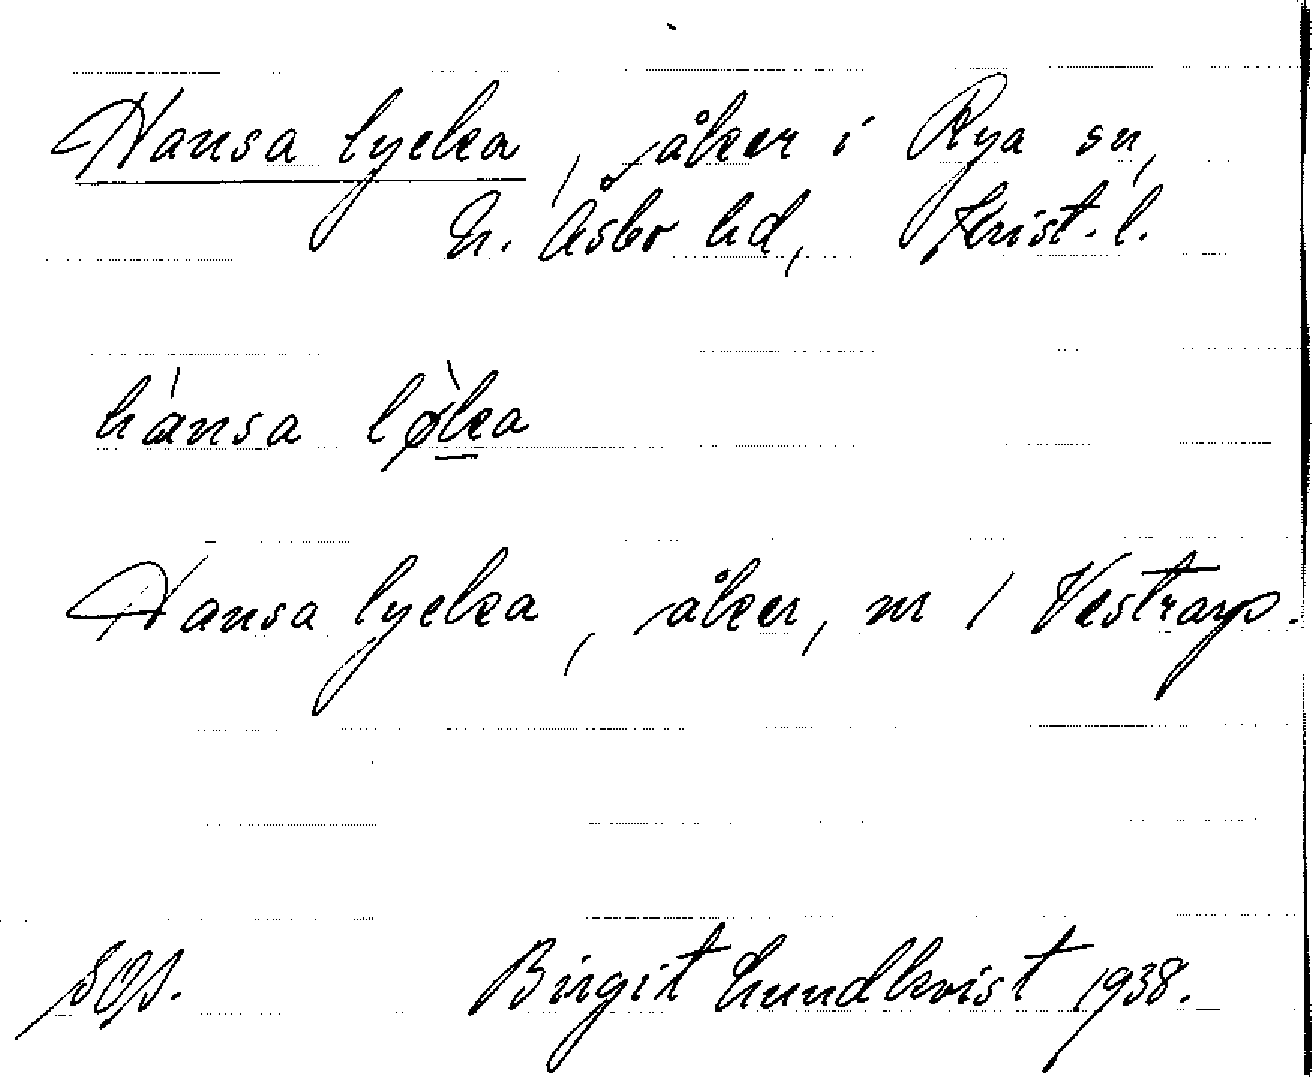 Hansa lycka, åker i Rya sn,
N. Åsbo hd, Krist. l.
hánsa lø̀ka
Hansa lycka, åker, nr 1 Vestrarp.
SOA. Birgit Lundkvist 1938.